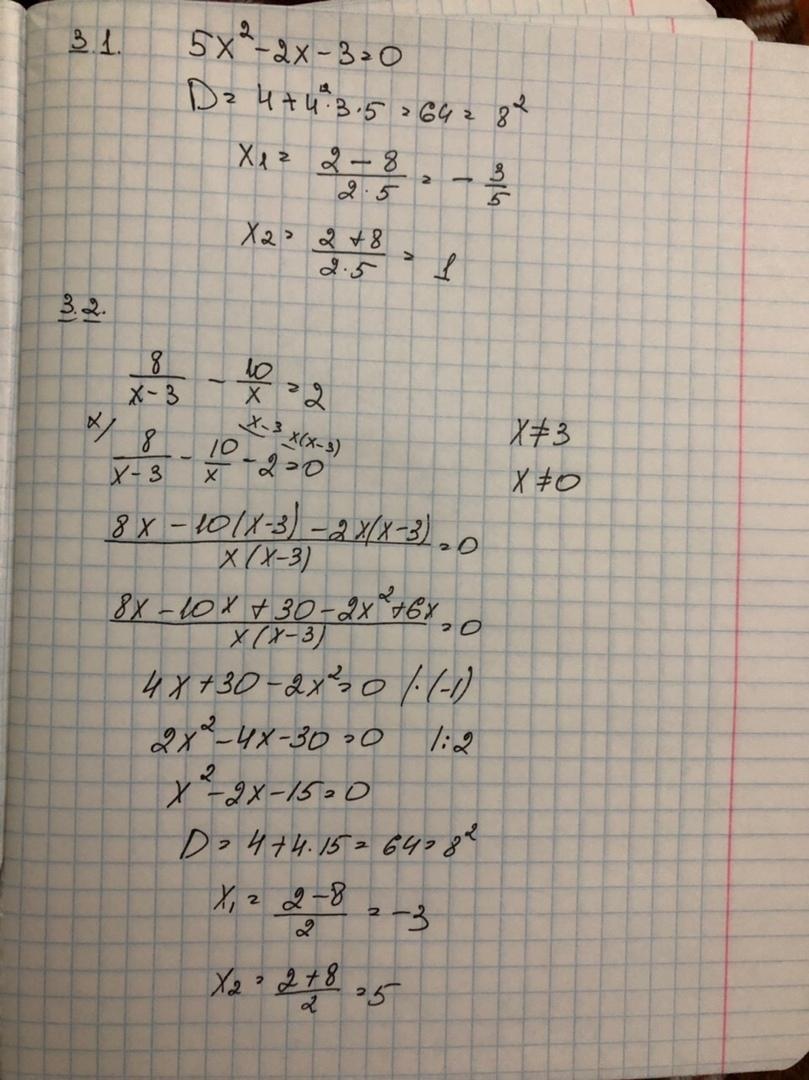 3.1. 5x² - 2x - 3 = 0
D = 4 + 4·3·5 = 64 = 8²
x₁ = (2 - 8)/(2·5) = -3/5
x₂ = (2 + 8)/(2·5) = 1
3.2.
8/(x-3) - 10/x = 2
x/ 8/(x-3) - 10/x x-3 - 2 x(x-3) = 0
x ≠ 3
x ≠ 0
(8x - 10(x-3) - 2x(x-3))/(x(x-3)) = 0
(8x - 10x + 30 - 2x² + 6x)/(x(x-3)) = 0
4x + 30 - 2x² = 0 |·(-1)
2x² - 4x - 30 = 0 |:2
x² - 2x - 15 = 0
D = 4 + 4·15 = 64 = 8²
x₁ = (2 - 8)/2 = -3
x₂ = (2 + 8)/2 = 5